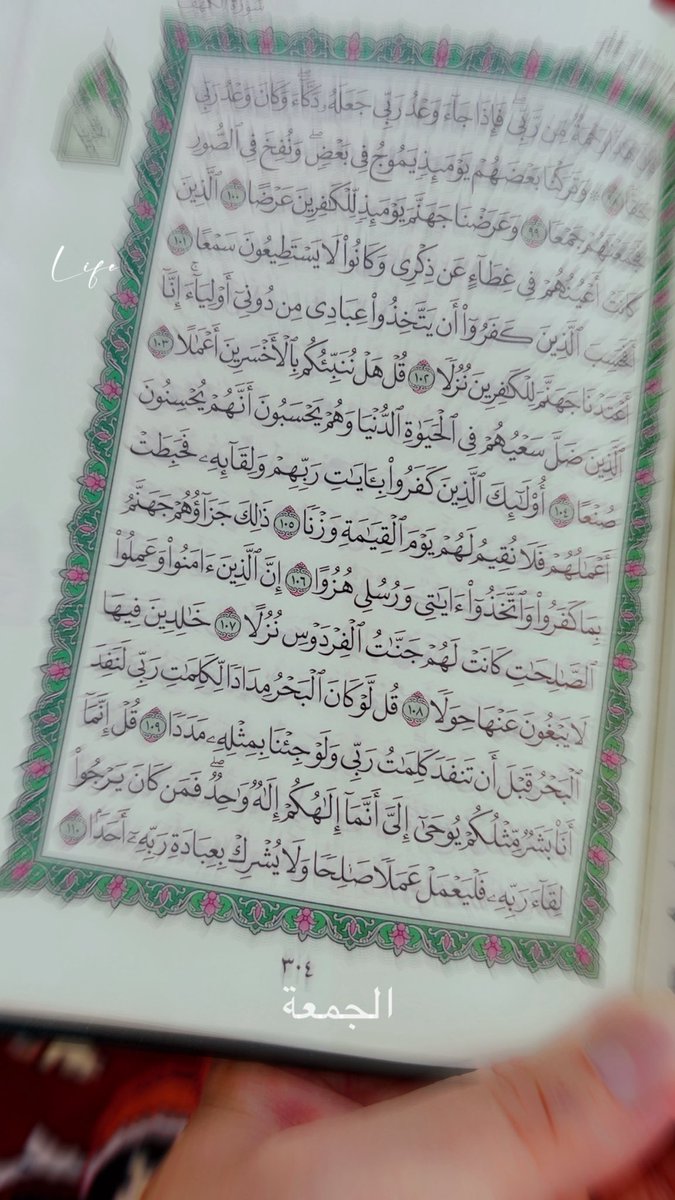 سُورَةُ الكَهْفِ
قَالَ هَٰذَا رَحْمَةٌ مِّن رَّبِّي فَإِذَا جَآءَ وَعْدُ رَبِّي جَعَلَهُۥ دَكَّآءَ وَكَانَ وَعْدُ رَبِّي
حَقًّا ٩٨ ۞ وَتَرَكْنَا بَعْضَهُمْ يَوْمَئِذٍ يَمُوجُ فِي بَعْضٍ وَنُفِخَ فِي ٱلصُّورِ
فَجَمَعْنَٰهُمْ جَمْعًا ٩٩ وَعَرَضْنَا جَهَنَّمَ يَوْمَئِذٍ لِّلْكَٰفِرِينَ عَرْضًا ١٠٠ ٱلَّذِينَ
كَانَتْ أَعْيُنُهُمْ فِي غِطَآءٍ عَن ذِكْرِي وَكَانُوا۟ لَا يَسْتَطِيعُونَ سَمْعًا ١٠١
أَفَحَسِبَ ٱلَّذِينَ كَفَرُوٓا۟ أَن يَتَّخِذُوا۟ عِبَادِي مِن دُونِيٓ أَوْلِيَآءَ ۚ إِنَّآ
أَعْتَدْنَا جَهَنَّمَ لِلْكَٰفِرِينَ نُزُلًا ١٠٢ قُلْ هَلْ نُنَبِّئُكُم بِٱلْأَخْسَرِينَ أَعْمَٰلًا ١٠٣
ٱلَّذِينَ ضَلَّ سَعْيُهُمْ فِي ٱلْحَيَوٰةِ ٱلدُّنْيَا وَهُمْ يَحْسَبُونَ أَنَّهُمْ يُحْسِنُونَ
صُنْعًا ١٠٤ أُو۟لَٰٓئِكَ ٱلَّذِينَ كَفَرُوا۟ بِـَٔايَٰتِ رَبِّهِمْ وَلِقَآئِهِۦ فَحَبِطَتْ
أَعْمَٰلُهُمْ فَلَا نُقِيمُ لَهُمْ يَوْمَ ٱلْقِيَٰمَةِ وَزْنًا ١٠٥ ذَٰلِكَ جَزَآؤُهُمْ جَهَنَّمُ
بِمَا كَفَرُوا۟ وَٱتَّخَذُوٓا۟ ءَايَٰتِي وَرُسُلِي هُزُوًا ١٠٦ إِنَّ ٱلَّذِينَ ءَامَنُوا۟ وَعَمِلُوا۟
ٱلصَّٰلِحَٰتِ كَانَتْ لَهُمْ جَنَّٰتُ ٱلْفِرْدَوْسِ نُزُلًا ١٠٧ خَٰلِدِينَ فِيهَا
لَا يَبْغُونَ عَنْهَا حِوَلًا ١٠٨ قُل لَّوْ كَانَ ٱلْبَحْرُ مِدَادًا لِّكَلِمَٰتِ رَبِّي لَنَفِدَ
ٱلْبَحْرُ قَبْلَ أَن تَنفَدَ كَلِمَٰتُ رَبِّي وَلَوْ جِئْنَا بِمِثْلِهِۦ مَدَدًا ١٠٩ قُلْ إِنَّمَآ
أَنَا۠ بَشَرٌ مِّثْلُكُمْ يُوحَىٰٓ إِلَيَّ أَنَّمَآ إِلَٰهُكُمْ إِلَٰهٌ وَٰحِدٌ ۖ فَمَن كَانَ يَرْجُوا۟
لِقَآءَ رَبِّهِۦ فَلْيَعْمَلْ عَمَلًا صَٰلِحًا وَلَا يُشْرِكْ بِعِبَادَةِ رَبِّهِۦٓ أَحَدًۢا ١١٠
Life
٣٠٤
الجمعة